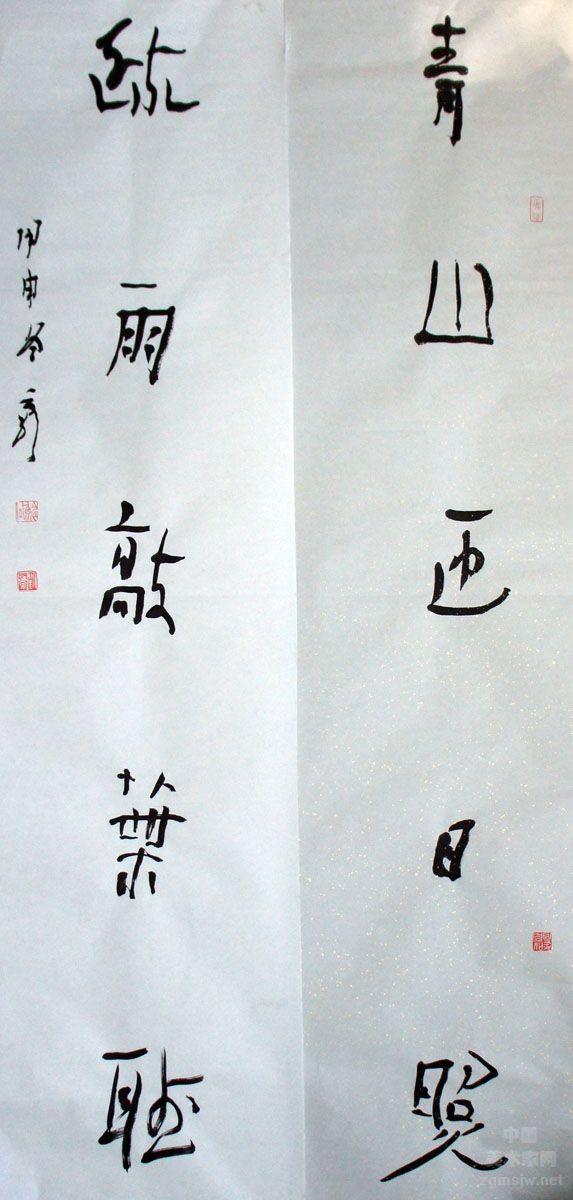 青山匝日照
疏雨敲葉聽
甲申
中国
美术家网
zgmsjw.net